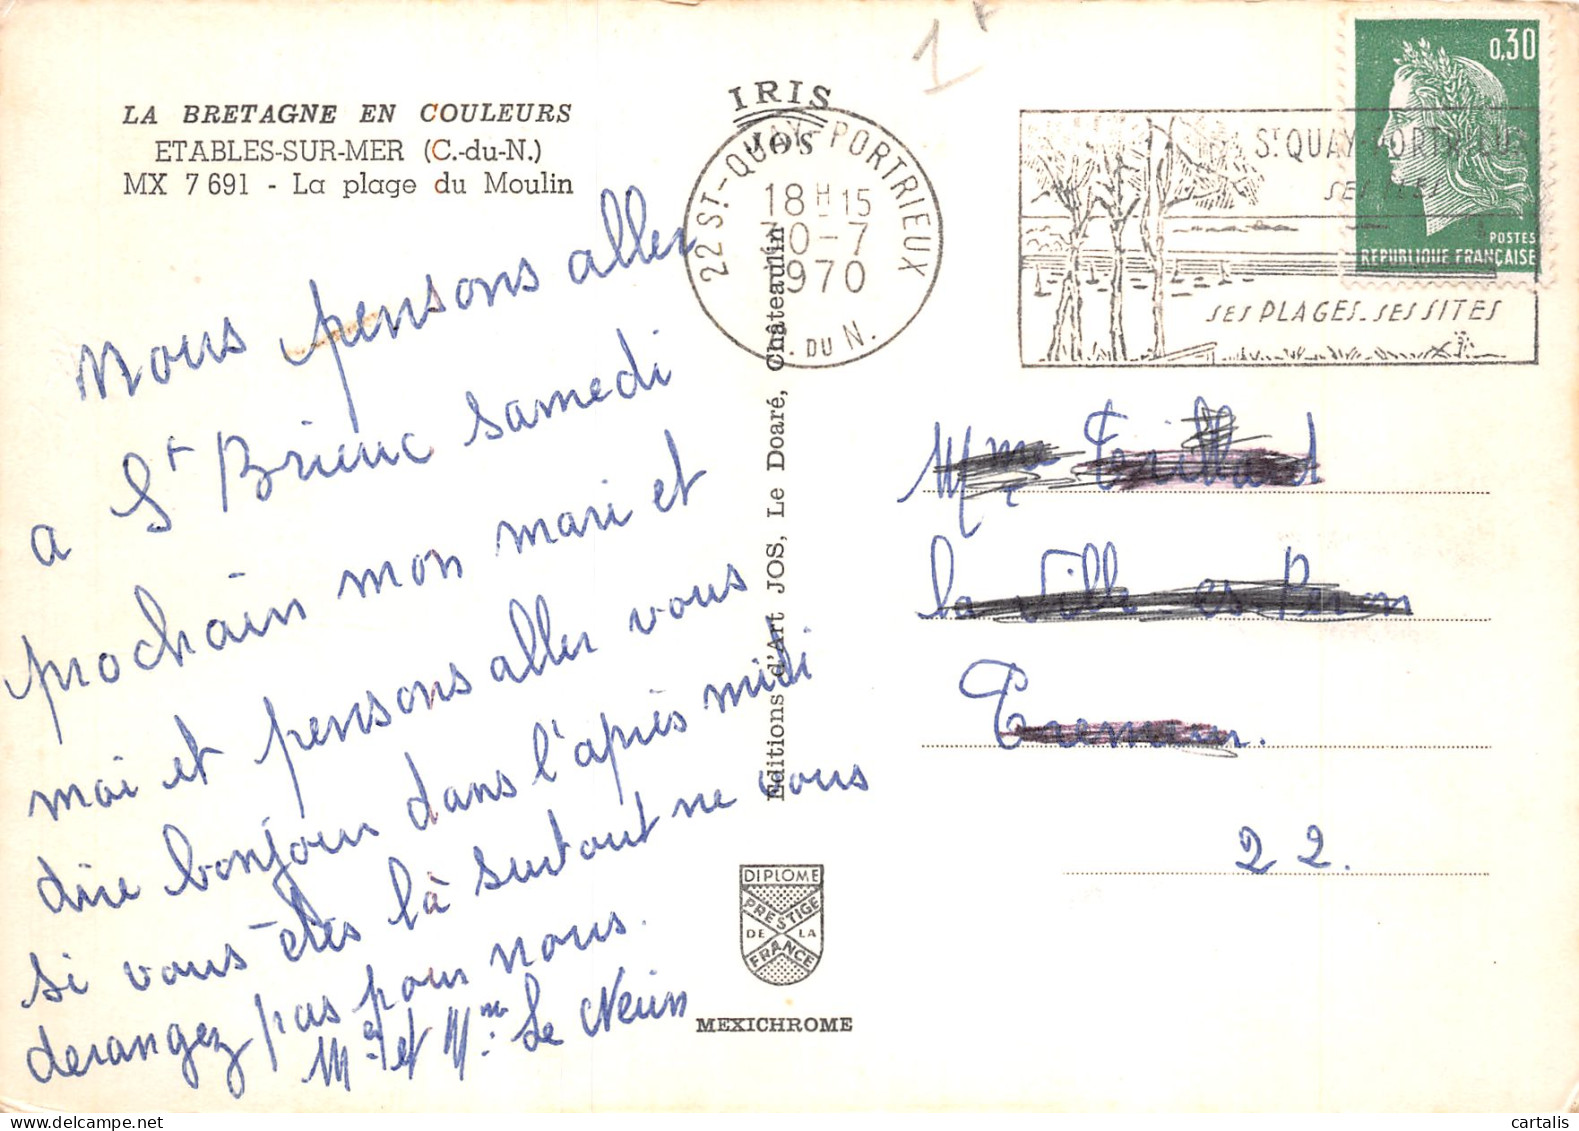 1F
LA BRETAGNE EN COULEURS
ETABLES-SUR-MER (C.-du-N.)
MX 7 691 - La plage du Moulin
IRIS
JOS
22 ST-QUAY-PORTRIEUX
18H15
30-7
1970
C. DU N.
ST QUAY-PORTRIEUX
SES PLAGES_SES SITES
0,30
POSTES
REPUBLIQUE FRANÇAISE
Nous pensons aller
a St Brieuc samedi
prochain mon mari et
moi et pensons aller vous
dire bonjour dans l'après midi
si vous êtes là surtout ne vous
derangez pas pour nous.
Mr et Mme Le
Editions d'Art JOS, Le Doaré, Châteaulin
Mme
la Ville es
22.
DIPLOME
PRESTIGE
DE LA
FRANCE
MEXICHROME
cartalis